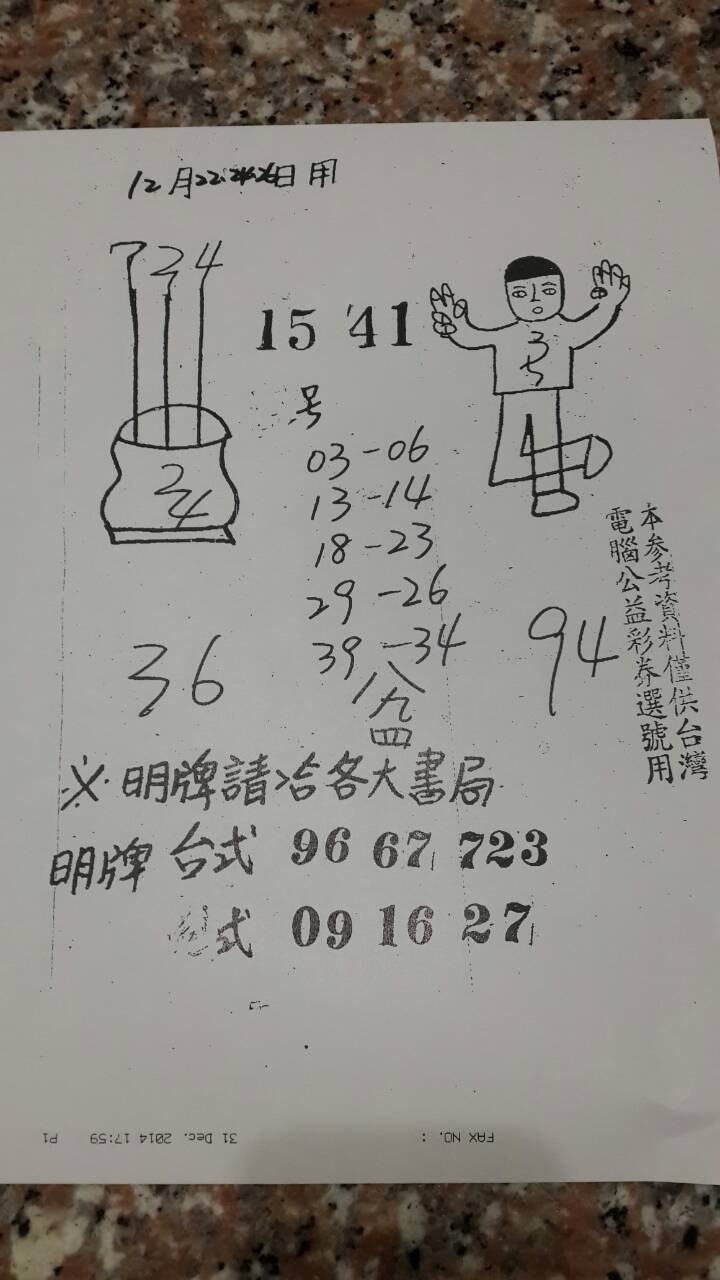 12月22.24.26日用
7 2 4
15 41
3
5
号
03-06
13-14
2
4
18-23
29-26
39-34
36
94
八
九
四
本參考資料僅供台灣
電腦公益彩券選號用
※明牌請洽各大書局
明牌 台式 96 67 723
式 09 16 27
FAX NO. :
31 Dec. 2014 17:59 P1